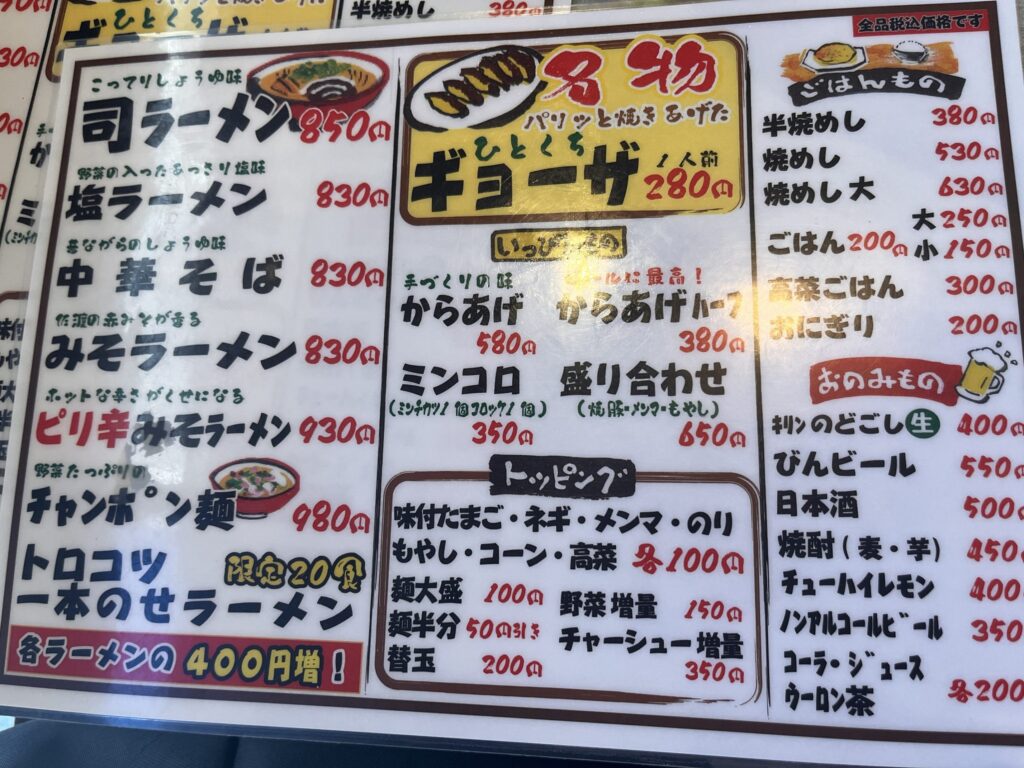 こってりしょうゆ味
司ラーメン 850円
野菜の入ったあっさり塩味
塩ラーメン 830円
昔ながらのしょうゆ味
中華そば 830円
佐渡の赤みそが香る
みそラーメン 830円
ホットな辛さがくせになる
ピリ辛みそラーメン 930円
野菜たっぷりの
チャンポン麺 980円
トロコツ 限定20食
一本のせラーメン
各ラーメンの400円増!
名物
パリッと焼きあげた
ひとくち
ギョーザ 1人前 280円
手づくりの味
からあげ
580円
に最高!
からあげハーフ
380円
ミンコロ
(ミンチカツ1個コロッケ1個)
350円
盛り合わせ
(焼豚・メンマ・もやし)
650円
トッピング
味付たまご・ネギ・メンマ・のり
もやし・コーン・高菜 各100円
麺大盛 100円
麺半分 50円引き
替玉 200円
野菜増量 150円
チャーシュー増量
350円
全品税込価格です
ごはんもの
半焼めし 380円
焼めし 530円
焼めし大 630円
ごはん 200円 大250円 小150円
高菜ごはん 300円
おにぎり 200円
おのみもの
キリンのどごし生 400円
びんビール 550円
日本酒 500円
焼酎(麦・芋) 450円
チューハイレモン 400
ノンアルコールビール 350
コーラ・ジュース
ウーロン茶 各200
半焼めし 380